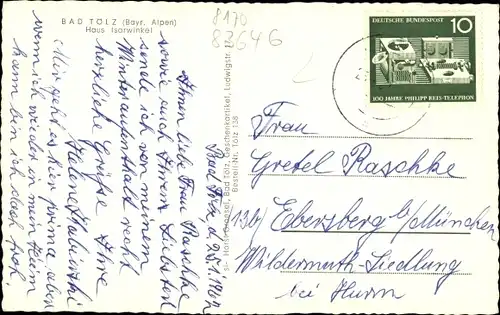 BAD TÖLZ (Bayr. Alpen)
Haus Isarwinkel
8170
83646
DEUTSCHE BUNDESPOST
10
100 JAHRE PHILIPP REIS-TELEPHON
Bad Tölz, d. 9.5.1962
Ihnen liebe Frau Raschke
sowie auch Ihrem Liebsten
sende ich von meinem
Winteraufenthalt recht
herzliche Grüße Ihre
Helene
Mir geht es hier prima aber
wenn ich wieder in mein Heim
kann bin ich doch froh.
Bad Tölz, Geschenkartikel, Ludwigstr.
Bestell-Nr. Tölz 138
Frau
Gretel Raschke
13b) Ebersberg b/München
Wildermuth-Siedlung
bei Hurm